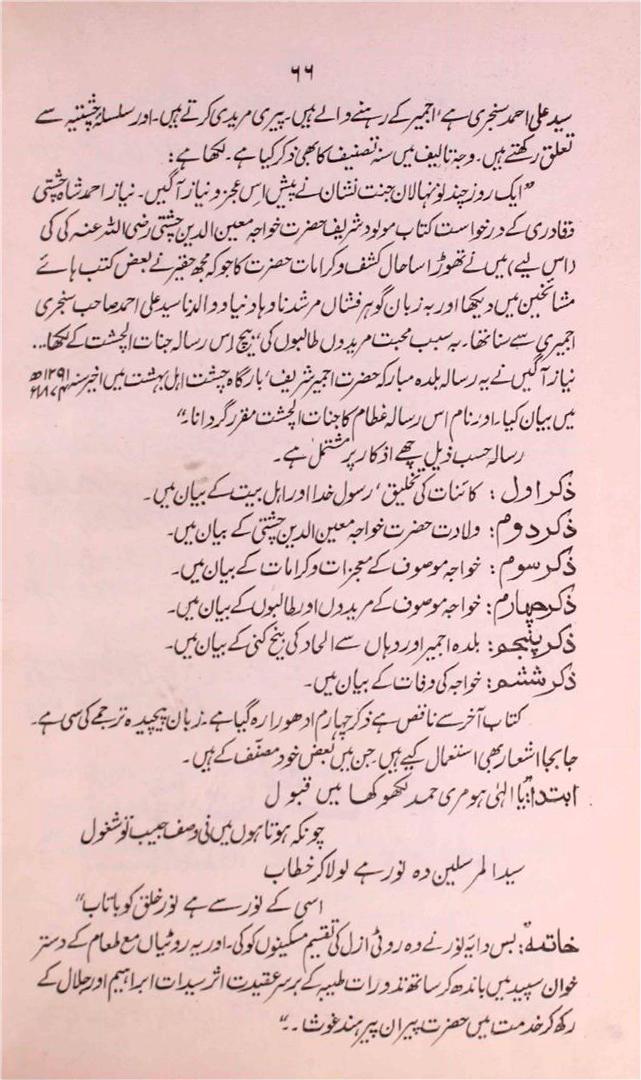 ۶۶
سید علی احمد سنجری ہے، اجمیر کے رہنے والے ہیں۔ پیری مریدی کرتے ہیں۔ اور سلسلۂ چشتیہ سے
تعلق رکھتے ہیں۔ وجہ تالیف میں سنہ تصنیف کا بھی ذکر کیا ہے۔ لکھا ہے:
"ایک روز چند نونہالان جنت نشان نے پیش اس عجز و نیاز آگیں۔ نیاز احمد شاہ چشتی
فقادری کے درخواست کتاب مولود شریف حضرت خواجہ معین الدین چشتی رضی اللہ عنہ کی کی
(اس لیے) میں نے تھوڑا سا حال کشف و کرامات حضرت کا جو کہ مجھ حقیر نے بعض کتب ہائے
مشائخین میں دیکھا اور بہ زبان گوہر فشاں مرشدنا و ہادینا و والدنا سید علی احمد صاحب سنجری
اجمیری سے سنا تھا۔ بہ سبب محبت مریدوں طالبوں کی، بیچ اس رسالہ جنات الچشت کے لکھا...
نیاز آگیں نے یہ رسالہ بلدہ مبارکہ حضرت اجمیر شریف، بارگاہ چشت اہل بہشت میں اخیر سنہ ۱۲۹۱ھ ۱۸۷۴ء
میں بیان کیا۔ اور نام اس رسالہ عظام کا جنات الچشت مقرر گردانا۔"
رسالہ حسب ذیل چھے اذکار پر مشتمل ہے۔
ذکر اول: کائنات کی تخلیق، رسول خدا اور اہل بیت کے بیان میں۔
ذکر دوم: ولادت حضرت خواجہ معین الدین چشتی کے بیان میں۔
ذکر سوم: خواجہ موصوف کے معجزات و کرامات کے بیان میں۔
ذکر چہارم: خواجہ موصوف کے مریدوں اور طالبوں کے بیان میں۔
ذکر پنجم: بلدہ اجمیر اور وہاں سے الحاد کی بیخ کنی کے بیان میں۔
ذکر ششم: خواجہ کی وفات کے بیان میں۔
کتاب آخر سے ناقص ہے ذکر چہارم ادھورا رہ گیا ہے۔ زبان پیچیدہ ترجمے کی سی ہے۔
جا بجا اشعار بھی استعمال کیے ہیں جن میں بعض خود مصنف کے ہیں۔
ابتدا: "یا الٰہی ہو مری حمد لکھو کھا میں قبول
چونکہ ہوتا ہوں میں نی وصف حبیب تو شغول
سید المرسلین وہ نور ہے لولاک خطاب
اسی کے نور سے ہے نور خلق کو باتاب"
خاتمہ: "بس دایۂ نور نے وہ روٹی ازل کی تقسیم مسکینوں کو کی۔ اور یہ روٹیاں مع طعام کے دستر
خوان سپید میں باندھ کر ساتھ نذورات طیبہ کے برسر عقیدت اثر سیدات ابراہیم اور جلال کے
رکھ کر خدمت میں حضرت پیران پیر ہند غوث ا۔۔"